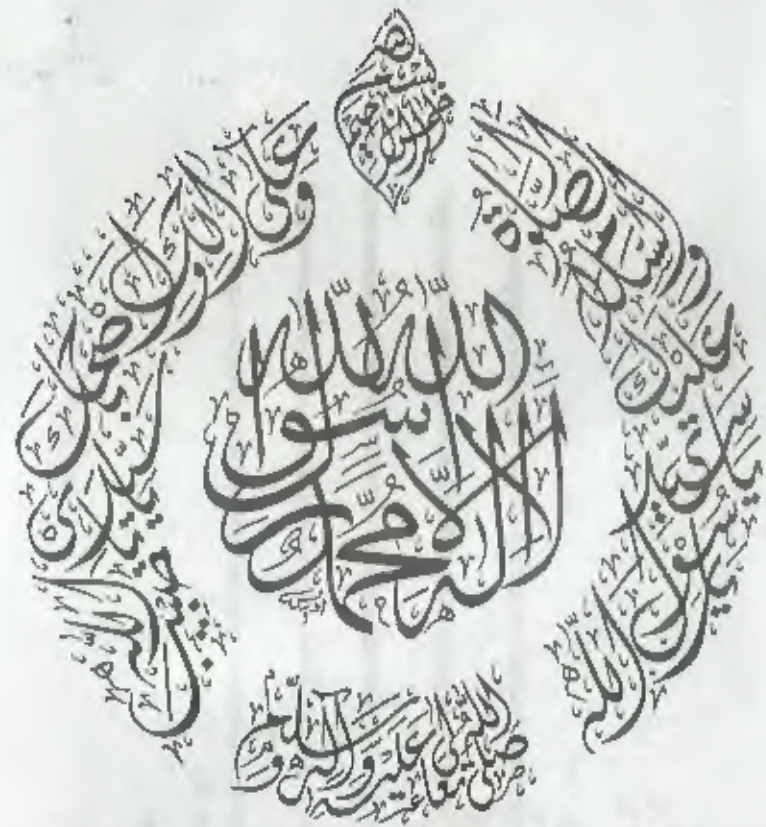 بسم الله الرحمن الرحيم
الصلاة والسلام عليك يا سيدي يا رسول الله
وعلى آلك وأصحابك يا سيدي يا حبيب الله
لا إله إلا الله محمد رسول الله
صلى الله تعالى عليه وآله وسلم